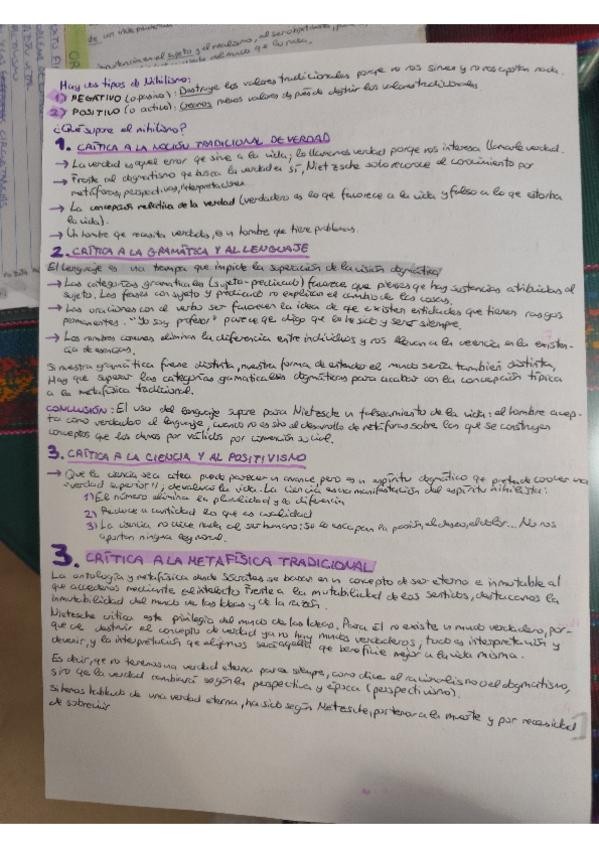 Hay dos tipos de Nihilismo:
1) NEGATIVO (o pasivo): Destruye los valores tradicionales porque no nos sirven y no nos aportan nada.
2) POSITIVO (o activo): Creamos nuevos valores después de destruir los valores tradicionales
¿Qué supone el nihilismo?
1. CRÍTICA A LA NOCIÓN TRADICIONAL DE VERDAD
→ La verdad es aquel error que sirve a la vida; lo llamamos verdad porque nos interesa llamarle verdad.
→ Frente al dogmatismo que busca la verdad en sí, Nietzsche solo reconoce el conocimiento por
metáforas, perspectivas, interpretaciones
→ La concepción relativa de la verdad (verdadero es lo que favorece a la vida y falso a lo que estorba
la vida).
→ Un hombre que necesita verdades, es un hombre que tiene problemas.
2. CRÍTICA A LA GRAMÁTICA Y AL LENGUAJE
El lenguaje es una trampa que impide la superación de la visión dogmática
→ Las categorías gramaticales (sujeto-predicado) favorece que pienses que hay sustancias atribuidas al
sujeto. Las frases con sujeto y predicado no explican el cambio de las cosas.
→ Las oraciones con el verbo ser favorecen la idea de que existen entidades que tienen rasgos
permanentes. "Yo soy profesor" parece que digo que lo he sido y seré siempre.
→ Los nombres comunes eliminan la diferencia entre individuos y nos llevan a la creencia en la existen-
cia de esencias.
Si nuestra gramática fuese distinta, nuestra forma de entender el mundo sería también distinta,
Hay que superar las categorías gramaticales dogmáticas para acabar con la concepción típica
a la metafísica tradicional.
CONCLUSIÓN: El uso del lenguaje supone para Nietzsche un falseamiento de la vida: el hombre acep-
ta como verdadero el lenguaje, cuando no es sino el desarrollo de metáforas sobre las que se construyen
conceptos que los damos por válidos por convención social.
3. CRÍTICA A LA CIENCIA Y AL POSITIVISMO
→ Que la ciencia sea atea puede parecer un avance, pero es un espíritu dogmático que pretende conocer una
"verdad superior"; devalúa la vida. La ciencia es una manifestación del espíritu nihilista:
1) El número elimina la pluralidad y la diferencia
2) Reduce a cantidad lo que es cualidad
3) La ciencia no dice nada al ser humano: se le escapan la pasión, el deseo, el dolor... No nos
aportan ninguna ley moral.
3. CRÍTICA A LA METAFÍSICA TRADICIONAL
La ontología y metafísica desde Sócrates se basan en un concepto de ser eterno e inmutable al
que accedemos mediante el intelecto. Frente a la mutabilidad de los sentidos, destacamos la
inmutabilidad del mundo de las Ideas y de la razón.
Nietzsche critica este privilegio del mundo de las Ideas. Para él no existe un mundo verdadero, por-
que al destruir el concepto de verdad ya no hay mundos verdaderos, todo es interpretación y
devenir, y la interpretación que elijamos será aquella que beneficie mejor a la vida misma.
Es decir, que no tenemos una verdad eterna para siempre, como dice el racionalismo o el dogmatismo,
sino que la verdad cambiará según la perspectiva y época (perspectivismo).
Si hemos hablado de una verdad eterna, ha sido según Nietzsche, por temor a la muerte y por necesidad
de sobrevivir